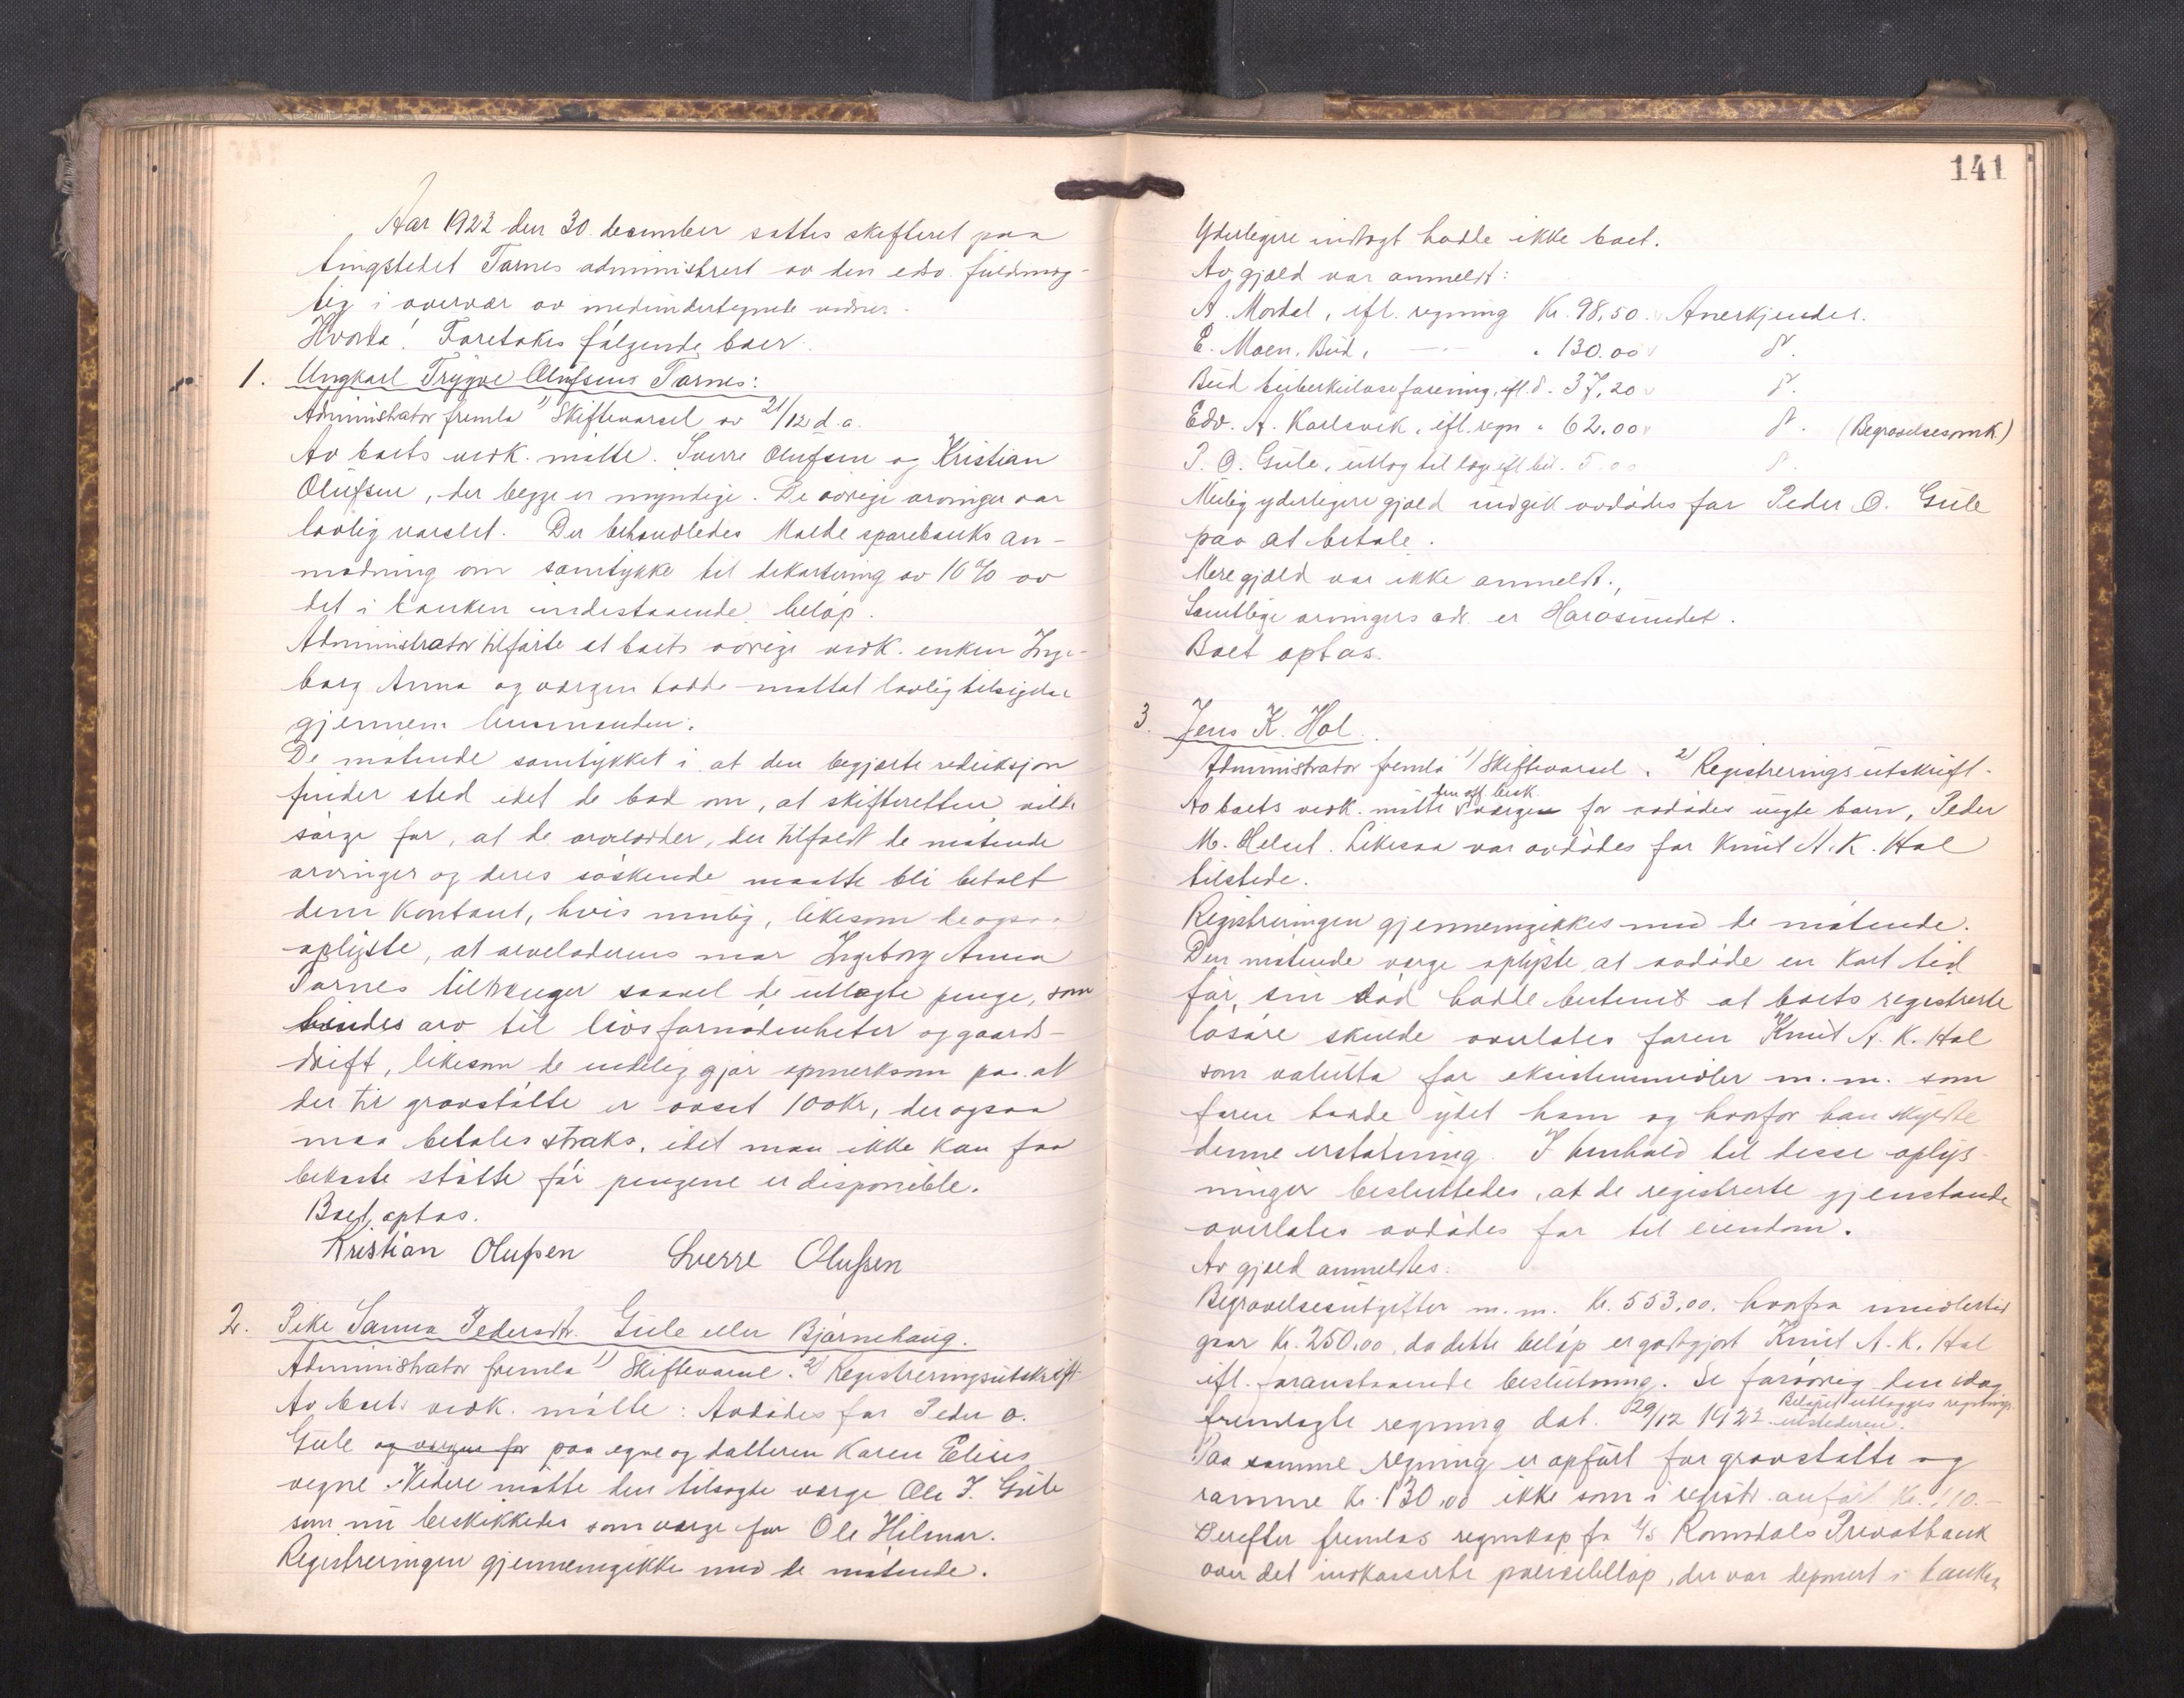 Aar 1922 den 30. december sattes skifteret paa
tingstedet Tarnes administrert av den edsv. fuldmæg-
tig i overvær av medundertegnede vidner.
Hvorda! Foretokes følgende boer:
1. Ungkarl Trygve Olufsens Tarnes:
Administrator fremla 1) Skiftevarsel av 21/12 d. a.
Av boets vedk. møtte. Sverre Olufsen og Kristian
Olufsen, der begge er myndige. De øvrige arvinger var
lovlig varslet. Der behandledes Molde sparebanks an-
modning om samtykke til dekortering av 10% av
det i banken indestaaende beløp.
Administrator tilførte at boets øvrige vedk. enken Inge-
borg Anna og værgen hadde mottat lovlig tilsigelse
gjennem lensmanden.
De møtende samtykket i at den begjærte reduksjon
finder sted idet de bad om, at skifteretten vilde
sørge for, at de arvelodder, der tilfaldt de møtende
arvinger og deres søskende maatte bli betalt
dem kontant, hvis mulig, likesom de ogsaa
oplyste, at arveladerens mor Ingeborg Anna
Tarnes tiltrænger saavel de utlagte penge, som
hendes arv til livsfornødenheter og gaards-
drift, likesom de endelig gjør opmerksom paa at
der til gravstøtte er avsat 100 kr, der ogsaa
maa betales straks, idet man ikke kan faa
bekoste støtte før pengene er disponible.
Boet optas.
Kristian Olufsen Sverre Olufsen
2. Pike Sanna Pedersdtr. Gule eller Bjørnehaug.
Administrator fremla 1) Skiftevarsel. 2) Registreringsutskrift
Av boets vedk. møtte: Avdødes far Peder O.
Gule og værgen for paa egne og datteren Karen Elises
vegne. Videre møtte den tilsagte værge Ole J. Gule
som nu beskikkedes som værge for Ole Hilmar.
Registreringen gjennemgikkes med de møtende.
141
Yderligere indtægt hadde ikke boet.
Av gjæld var anmeldt:
A. Mordal, ifl. regning Kr. 98,50. Anerkjendes.
E. Moen. Bud, — " 130.00 do.
Bud tuberkuloseforening, ifl. do. 37,20 do.
Edv. A. Karlsvik, ifl. regn " 62.00 do. (Begravelsesomk.)
P. O. Gule, utlæg til læge ifl. bil. 5.00 do.
Mulig yderligere gjæld indgik avdødes far Peder O. Gule
paa at betale.
Mere gjæld var ikke anmeldt.
Samtlige arvingers adr. er Harøsundet.
Boet optas.
3. Jens K. Hol.
Administrator fremla 1) Skiftevarsel. 2) Registreringsutskrift.
den off. besk.
Av boets vedk. møtte værgen for avdødes uegte barn, Peder
M. Helset. Likesaa var avdødes far Knut A. K. Hol
tilstede.
Registreringen gjennemgikkes med de møtende.
Den møtende værge oplyste at avdøde en kort tid
før sin død hadde bestemt at boets registrerte
løsøre skulde overlates faren Knut A. K. Hol
som valutta for eksistensmidler m. m. som
faren hadde ydet ham og hvorfor han skyldte
denne erstatning. I henhold til disse oplys-
ninger besluttedes, at de registrerte gjenstande
overlates avdødes far til eiendom.
Av gjæld anmeldtes:
Begravelsesutgifter m. m. Kr. 553,00. hvorfra imidlertid
gaar Kr. 250,00, da dette beløp er godtgjort Knut A. K. Hol
ifl. foranstaaende beslutning. Se forøvrig den idag
fremlagte regning dat. 29/12 1922. Beløpet utlægges regnings-
utstederen.
Paa samme regning er opført for gravstøtte og
ramme Kr. 130,00 ikke som i registr. anført Kr. 110.—
Derefter fremlas regnskap fra A/S Romsdals Privatbank
over det indkasserte polisebeløp, der var deponert i banken